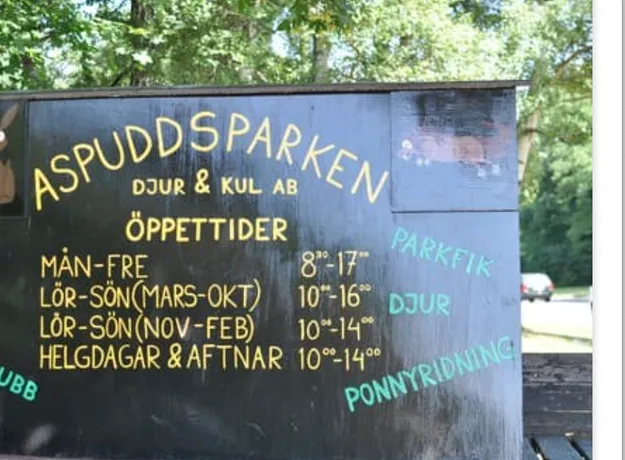 ASPUDDSPARKEN
DJUR & KUL AB
ÖPPETTIDER
MÅN-FRE 8³⁰-17⁰⁰
LÖR-SÖN(MARS-OKT) 10⁰⁰-16⁰⁰
LÖR-SÖN(NOV-FEB) 10⁰⁰-14⁰⁰
HELGDAGAR & AFTNAR 10⁰⁰-14⁰⁰
PARKFIK
DJUR
PONNYRIDNING
UBB